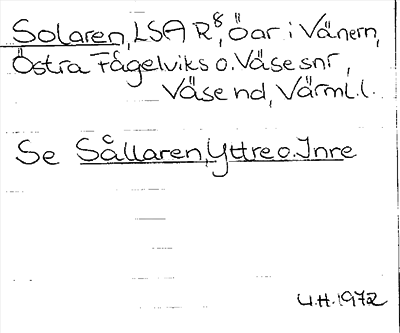 Solaren, LSA R8, Öar i Vänern,
Östra Fågelviks o. Väse snr,
Väse nd, Värml. l.
Se Sållaren, Yttre o. Inre
U.H. 1972